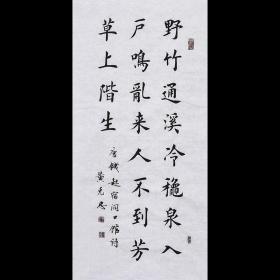 野竹通溪冷穐泉入
户鳴亂来人不到芳
草上階生
唐錢起宿洞口館詩